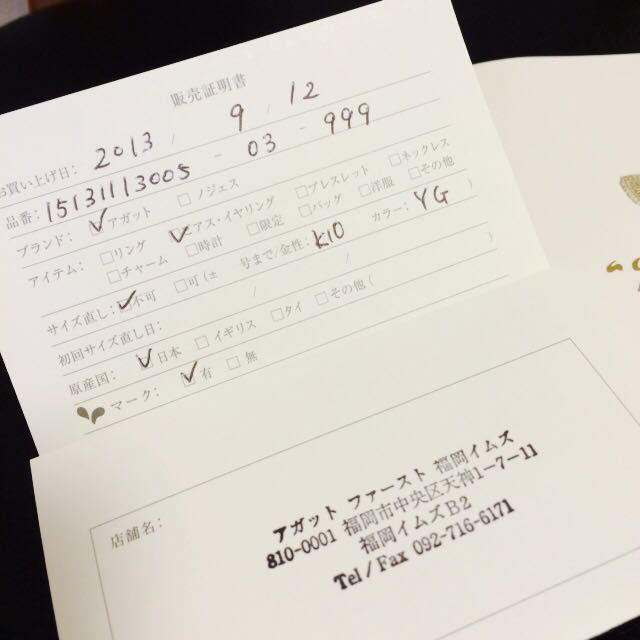 販売証明書
お買い上げ日: 2013 / 9 / 12
品番: 15131113005 - 03 - 999
ブランド: ☑アガット □ノジェス
アイテム: □リング ☑ピアス・イヤリング □ブレスレット □ネックレス
□チャーム □時計 □限定 □バッグ □洋服 □その他
サイズ直し: ☑不可 □可(± 号まで/金性: K10 カラー: YG )
初回サイズ直し日: / / )
原産国: ☑日本 □イギリス □タイ □その他(
マーク: ☑有 □無
店舗名:
アガット ファースト 福岡イムズ
810-0001 福岡市中央区天神1-7-11
福岡イムズB2
Tel/Fax 092-716-6171